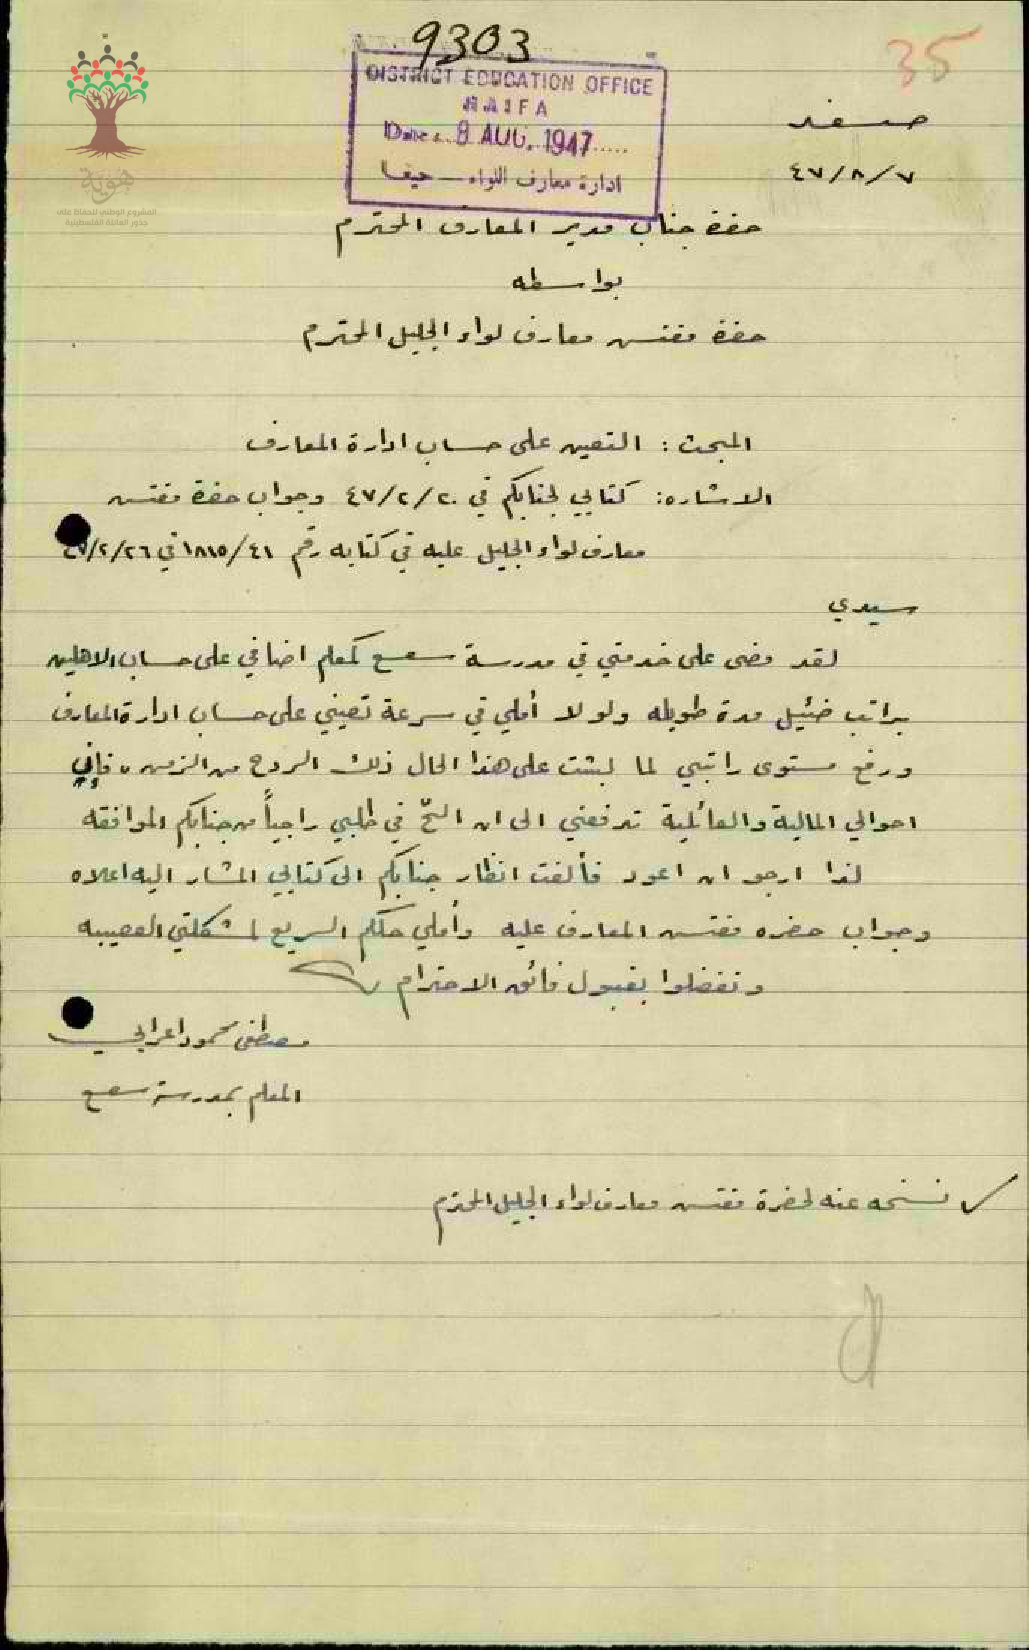 9303
35
DISTRICT EDUCATION OFFICE
HAIFA
Date 8 AUG. 1947
ادارة معارف اللواء - حيفا
هوية
المشروع الوطني للحفاظ على
جذور العائلة الفلسطينية
صفد
٤٧/٨/٧
حضرة جناب مدير المعارف المحترم
بواسطه
حضرة مفتش معارف لواء الجليل المحترم
المبحث: التعيين على حساب ادارة المعارف
الاشاره: كتابي لجنابكم في ٤٧/٢/٢٠ وجواب حضرة مفتش
معارف لواء الجليل عليه في كتابه رقم ١٨١٥/٤١ في ٤٧/٢/٢٦
سيدي
لقد مضى على خدمتي في مدرسة سعسع كمعلم اضافي على حساب الاهلين
براتب ضئيل مدة طويله ولولا أملي في سرعة تعييني على حساب ادارة المعارف
ورفع مستوى راتبي لما لبثت على هذا الحال ذلك الردح من الزمن، فإن
احوالي المالية والعائلية تدفعني الى ان الحّ في طلبي راجياً من جنابكم الموافقه
لذا ارجو ان اعود فألفت انظار جنابكم الى كتابي المشار اليه اعلاه
وجواب حضره مفتش المعارف عليه وأملي حلكم السريع لمشكلتي العصيبه
وتفضلوا بقبول فائق الاحترام
مصطفى محمود اعرابي
المعلم بمدرسة سعسع
نسخه عنه لحضرة مفتش معارف لواء الجليل المحترم